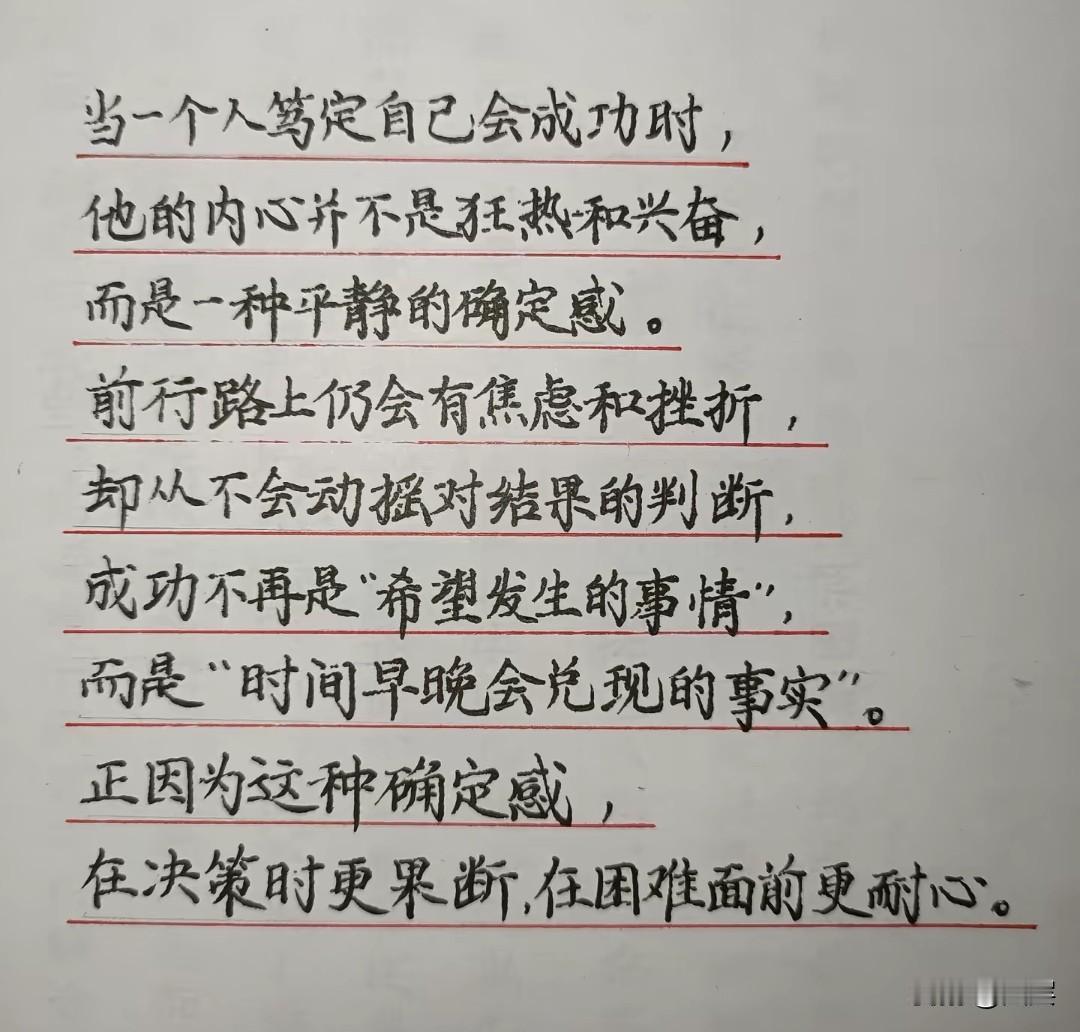 当一个人笃定自己会成功时，
他的内心并不是狂热和兴奋，
而是一种平静的确定感。
前行路上仍会有焦虑和挫折，
却从不会动摇对结果的判断，
成功不再是“希望发生的事情”，
而是“时间早晚会兑现的事实”。
正因为这种确定感，
在决策时更果断，在困难面前更耐心。